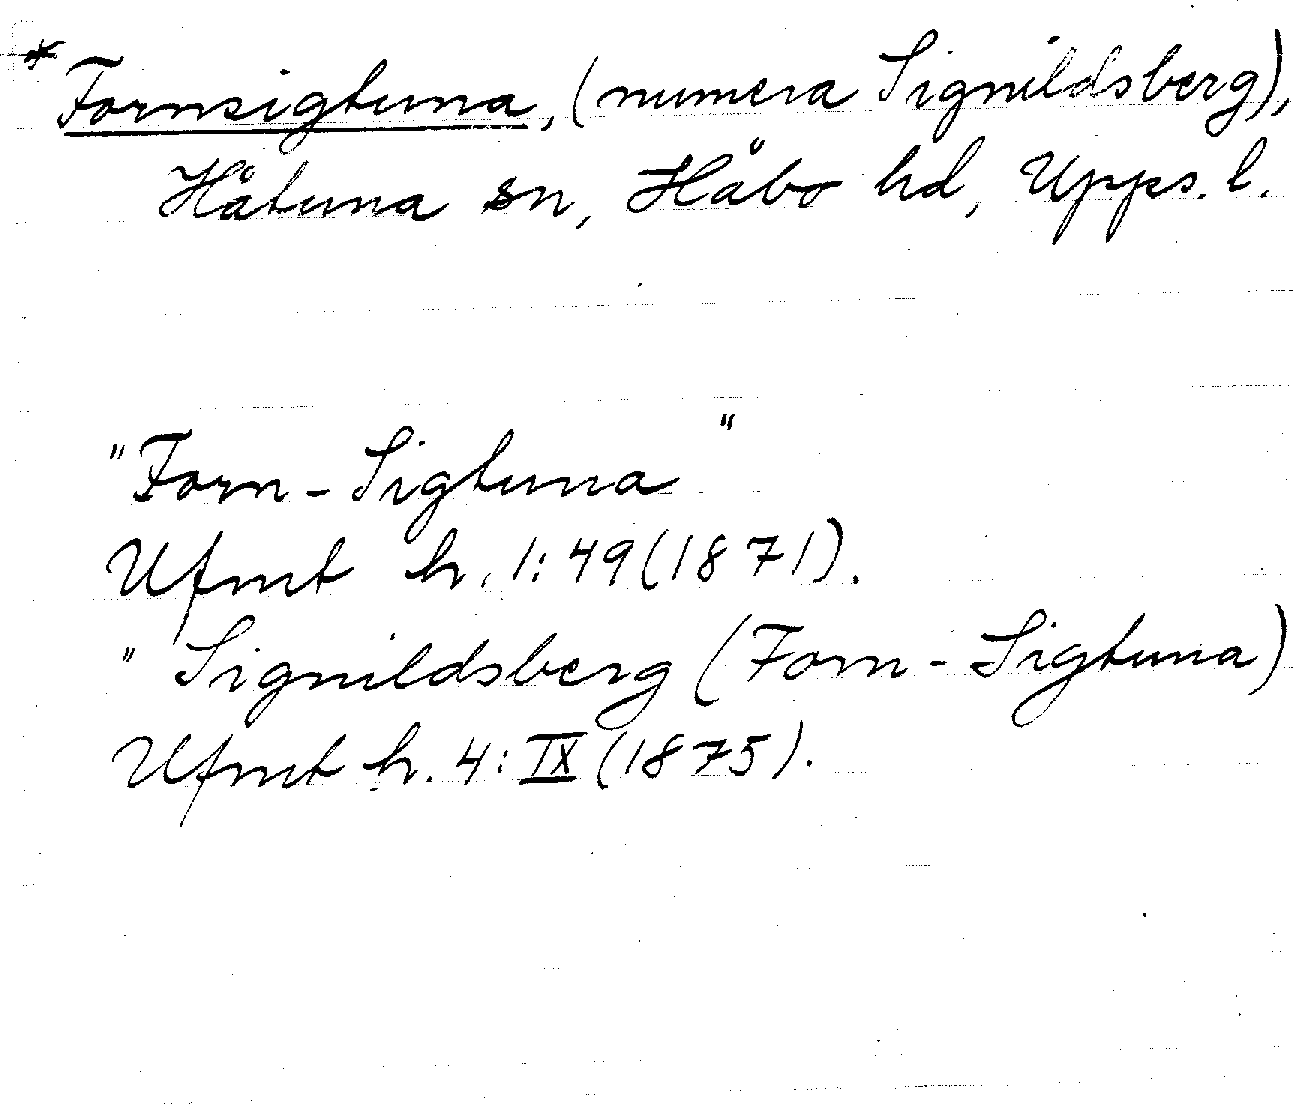 * Fornsigtuna, (numera Signildsberg),
Håtuna sn, Håbo hd, Upps. l.
"Forn-Sigtuna"
Ufmt h. 1:49 (1871).
" Signildsberg (Forn-Sigtuna)
Ufmt h. 4: IX (1875).